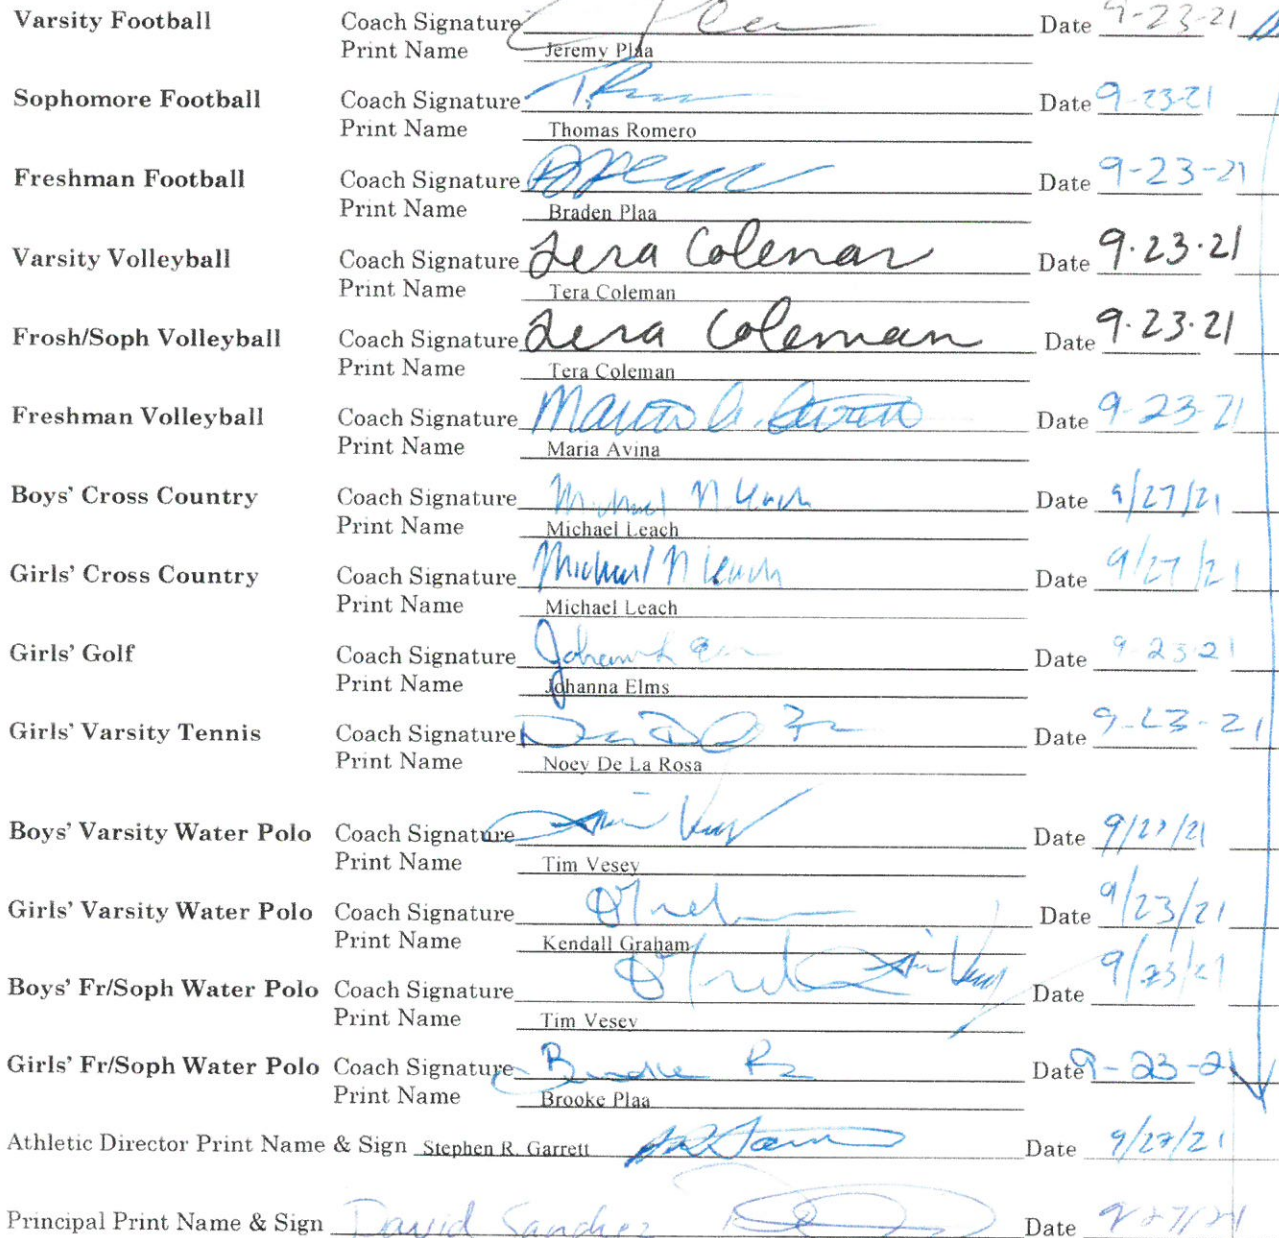 Varsity Football Coach Signature Date 9-23-21
Print Name Jeremy Plaa
Sophomore Football Coach Signature Date 9-23-21
Print Name Thomas Romero
Freshman Football Coach Signature Date 9-23-21
Print Name Braden Plaa
Varsity Volleyball Coach Signature Tera Coleman Date 9.23.21
Print Name Tera Coleman
Frosh/Soph Volleyball Coach Signature Tera Coleman Date 9.23.21
Print Name Tera Coleman
Freshman Volleyball Coach Signature Date 9-23-21
Print Name Maria Avina
Boys' Cross Country Coach Signature Michael N Leach Date 9/27/21
Print Name Michael Leach
Girls' Cross Country Coach Signature Michael N Leach Date 9/27/21
Print Name Michael Leach
Girls' Golf Coach Signature Date 9-23-21
Print Name Johanna Elms
Girls' Varsity Tennis Coach Signature Date 9-23-21
Print Name Noey De La Rosa
Boys' Varsity Water Polo Coach Signature Date 9/27/21
Print Name Tim Vesey
Girls' Varsity Water Polo Coach Signature Date 9/23/21
Print Name Kendall Graham
Boys' Fr/Soph Water Polo Coach Signature Date 9/23/21
Print Name Tim Vesey
Girls' Fr/Soph Water Polo Coach Signature Date 9-23-21
Print Name Brooke Plaa
Athletic Director Print Name & Sign Stephen R. Garrett Date 9/27/21
Principal Print Name & Sign David Sanchez Date 9/27/21